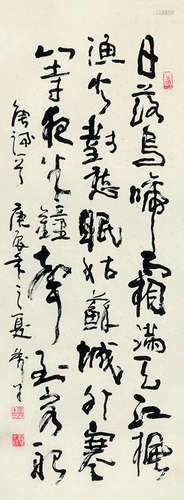 日落烏啼霜滿天江楓
漁火對愁眠姑蘇城外寒
山寺夜半鐘聲到客船
唐詩 庚辰年之夏